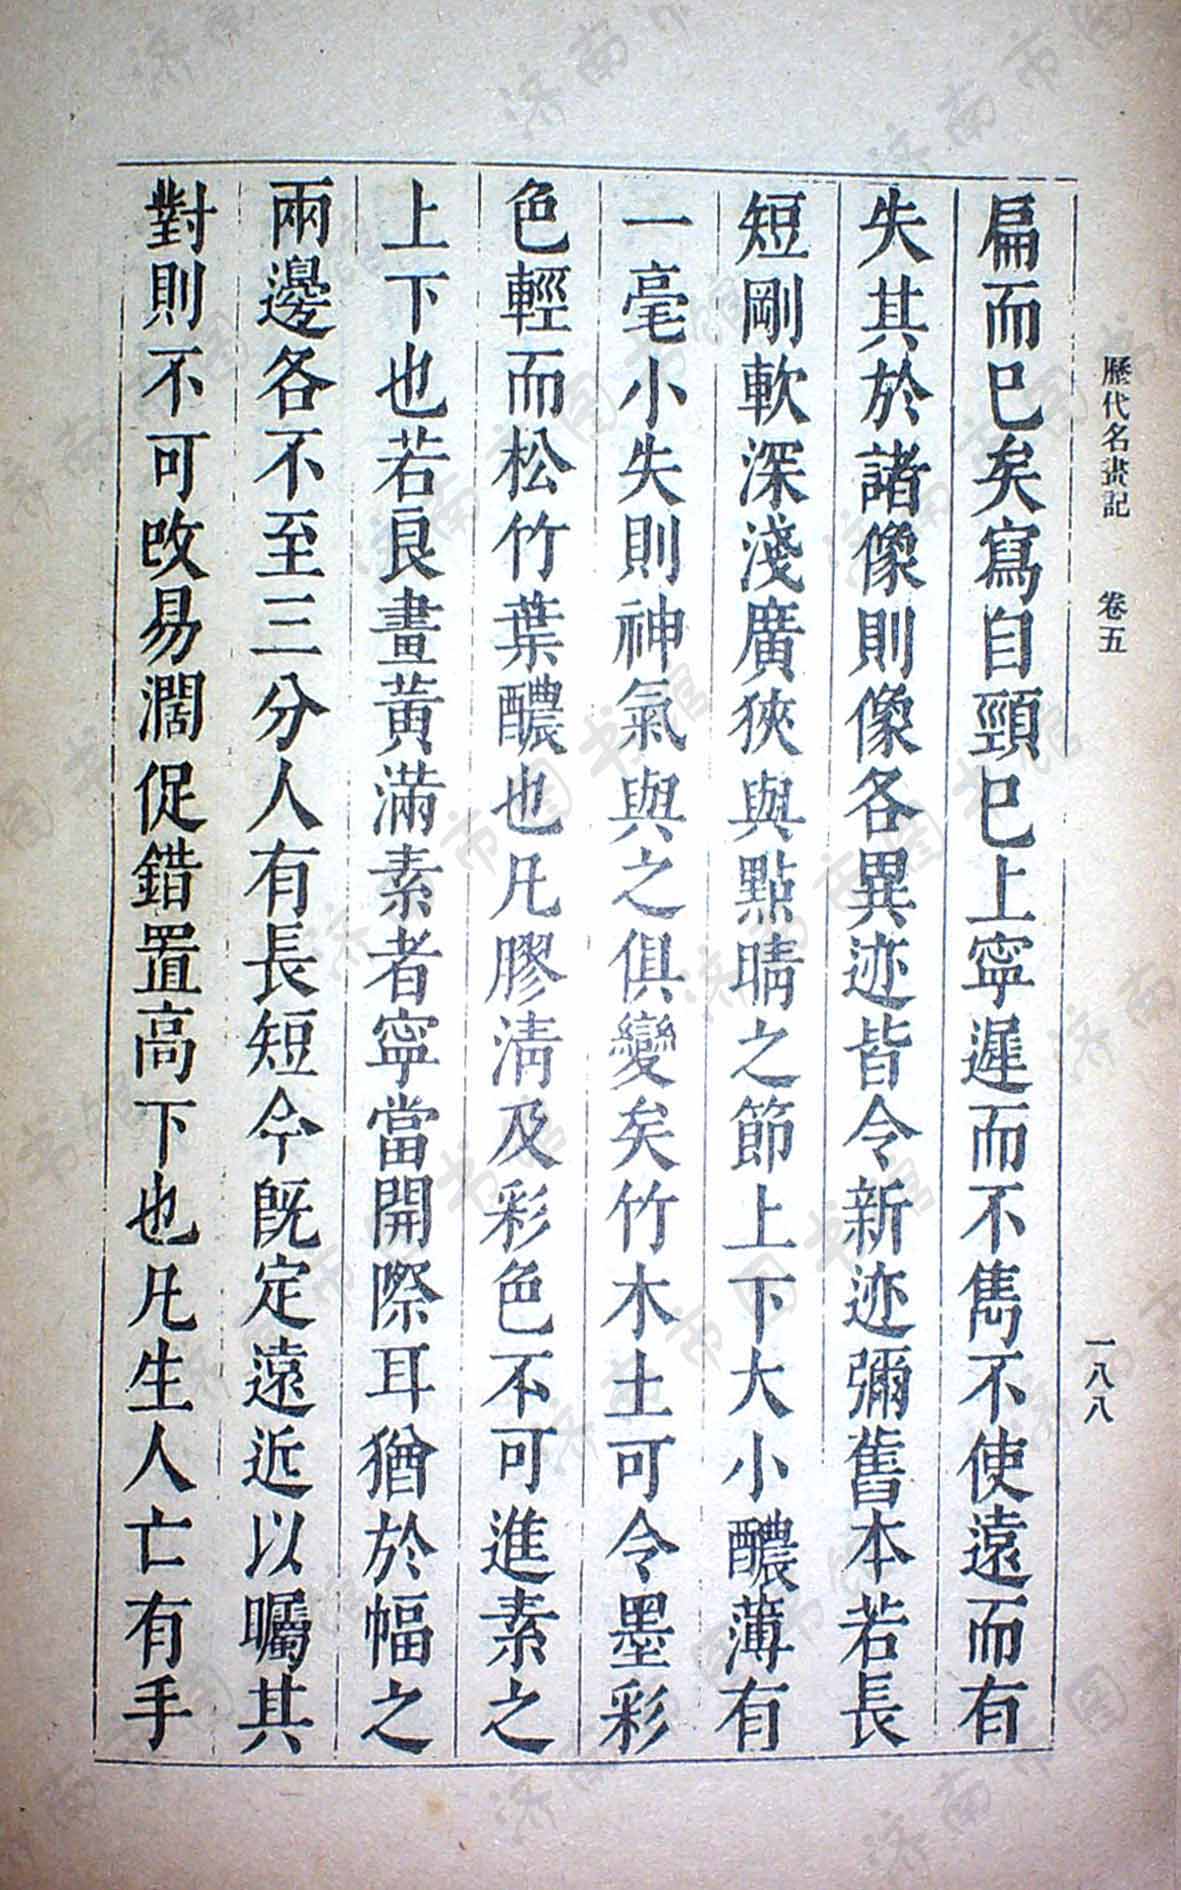 歷代名畫記 卷五 一八八
扁而已矣寫自頸已上寧遲而不雋不使遠而有
失其於諸像則像各異迹皆令新迹彌舊本若長
短剛軟深淺廣狹與點睛之節上下大小醲薄有
一毫小失則神氣與之俱變矣竹木土可令墨彩
色輕而松竹葉醲也凡膠清及彩色不可進素之
上下也若良畫黃滿素者寧當開際耳猶於幅之
兩邊各不至三分人有長短今既定遠近以矚其
對則不可改易濶促錯置高下也凡生人亡有手
济南市图书馆